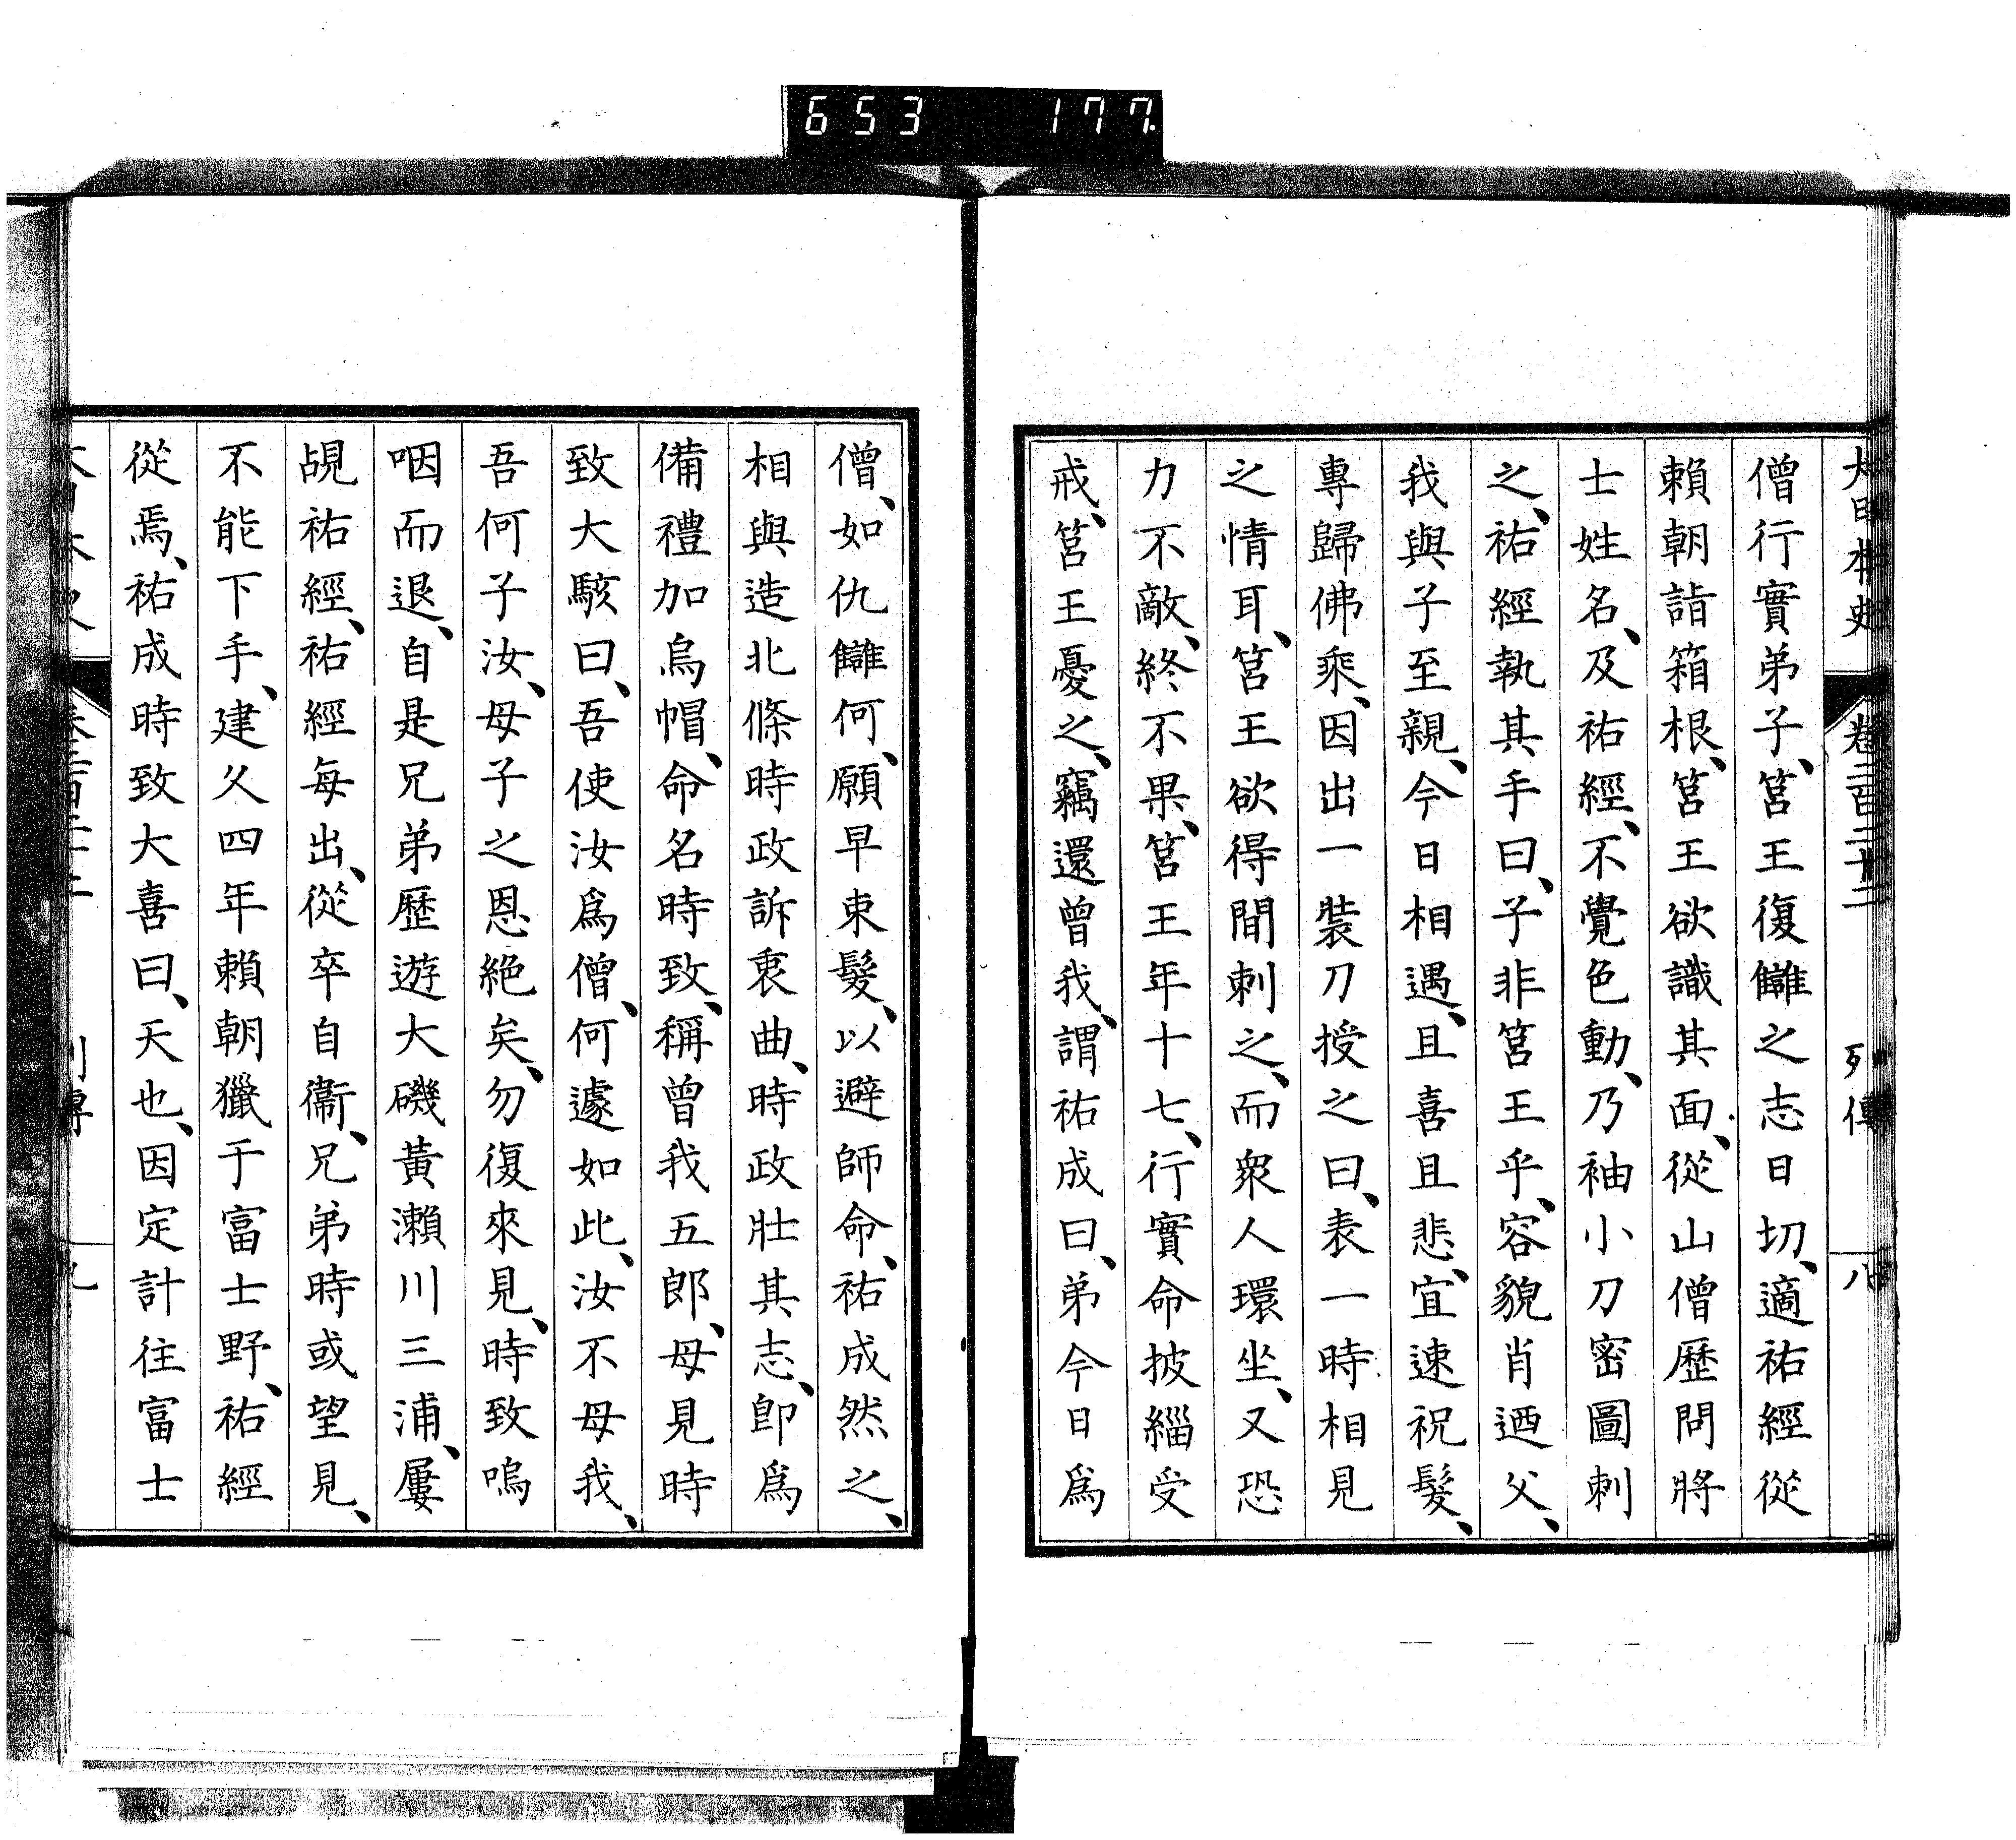 653 177
大日本史 卷二百二十二 列傳 八
僧行實弟子、筥王復讎之志日切、適祐經從
賴朝詣箱根、筥王欲識其面、從山僧歷問將
士姓名、及祐經、不覺色動、乃袖小刀密圖刺
之、祐經執其手曰、子非筥王乎、容貌肖迺父、
我與子至親、今日相遇、且喜且悲、宜速祝髮、
專歸佛乘、因出一裝刀授之曰、表一時相見
之情耳、筥王欲得間刺之、而衆人環坐、又恐
力不敵、終不果、筥王年十七、行實命披緇受
戒、筥王憂之、竊還曾我、謂祐成曰、弟今日爲
僧、如仇讎何、願早束髮、以避師命、祐成然之、
相與造北條時政訴衷曲、時政壯其志、卽爲
備禮加烏帽、命名時致、稱曾我五郎、母見時
致大駭曰、吾使汝爲僧、何遽如此、汝不母我、
吾何子汝、母子之恩絕矣、勿復來見、時致嗚
咽而退、自是兄弟歷遊大磯黃瀨川三浦、屢
覘祐經、祐經每出、從卒自衞、兄弟時或望見、
不能下手、建久四年賴朝獵于富士野、祐經
從焉、祐成時致大喜曰、天也、因定計往富士